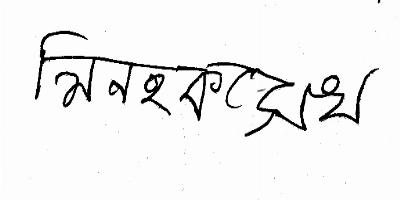 মিনহক সেখ